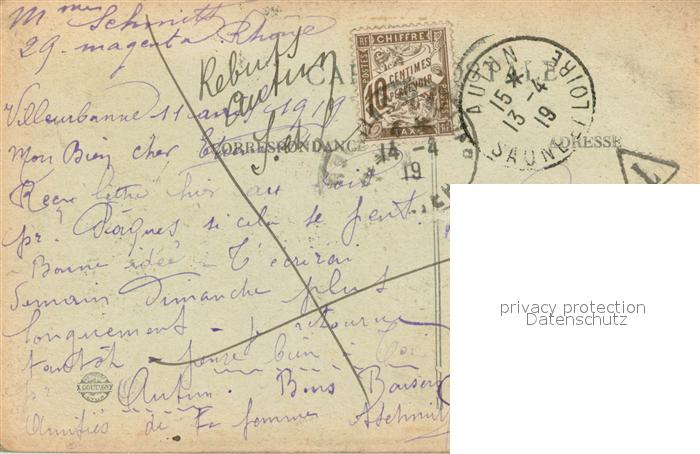 Mme Schmitt
29. magenta Rhône
Rebuts
Autun
S.L.
CA
POSTALE
CHIFFRE
RF
POSTES
10 CENTIMES
A PERCEVOIR
TAXE
AUTUN
15 *
13 - 4
19
SAONE
LOIRE
14 - 4
19
Villeurbanne 11 avril 1919
CORRESPONDANCE
ADRESSE
T
Mon Bien cher
Reçu lettre hier au soir
pr. Pâques si cela se peut
Bonne idée - T'écrirai
demain Dimanche plus
longuement - Je retourne
tantôt pense bien à toi
Autun. Bons Baisers
Amitiés de ta femme
privacy protection
Datenschutz